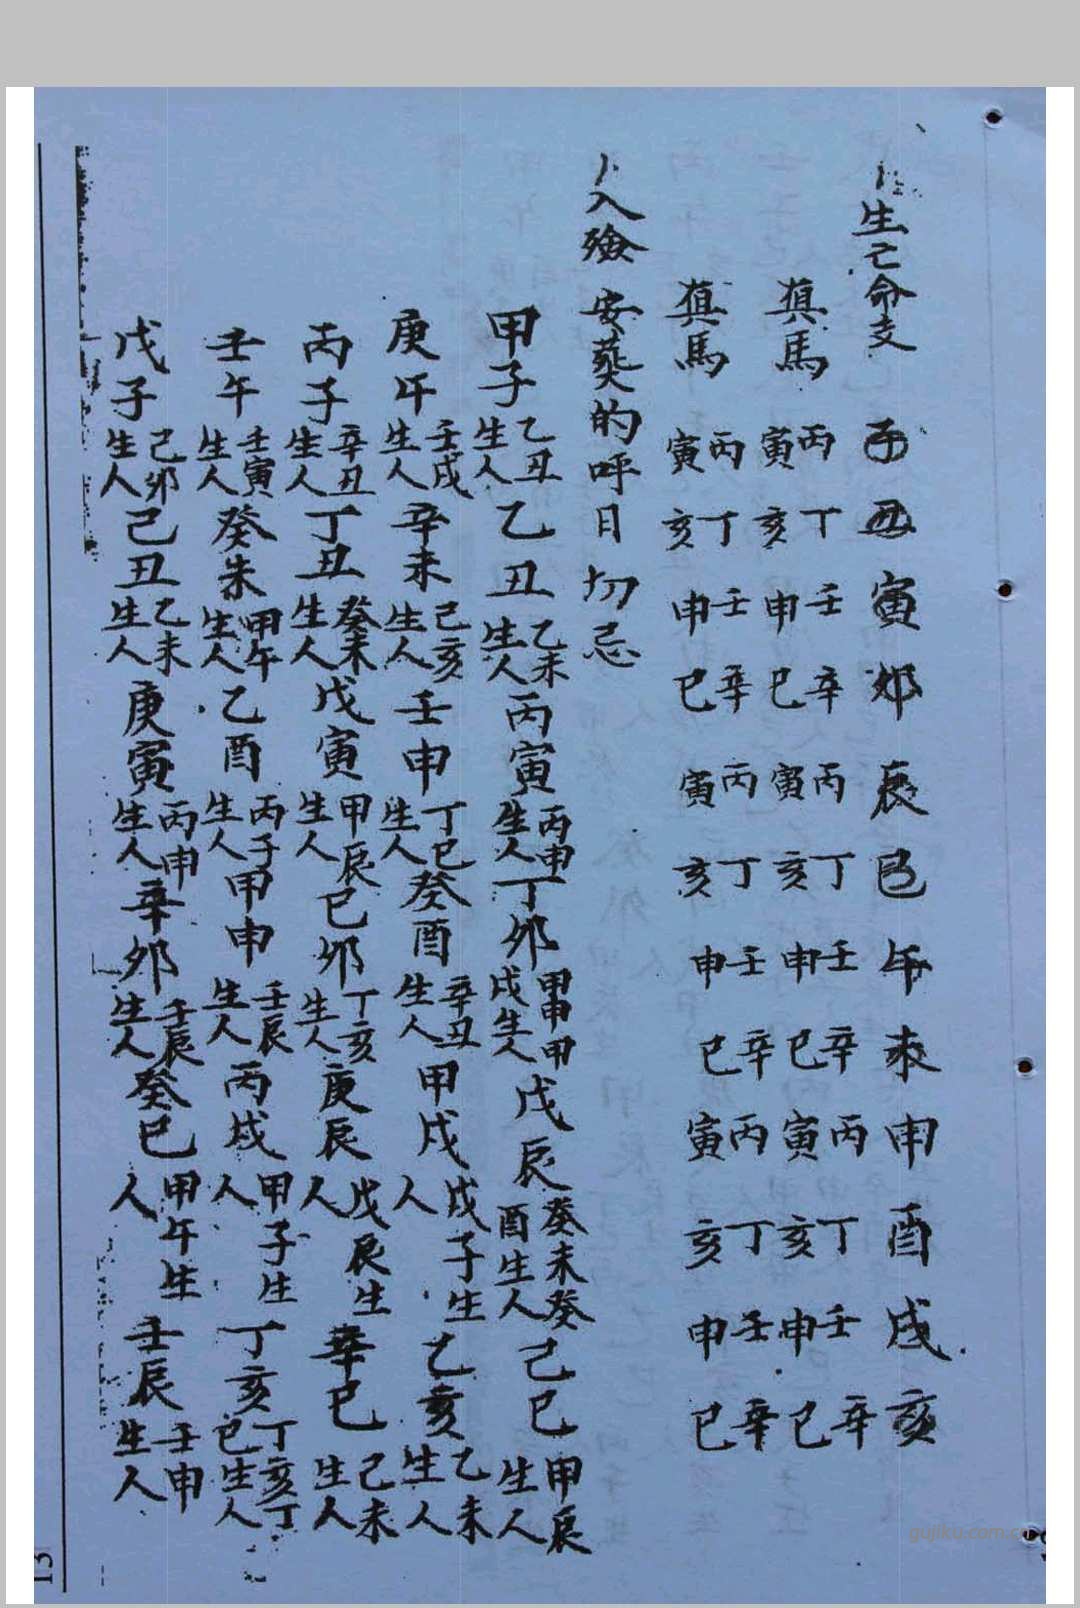 生亡命支 子 丑 寅 夘 辰 巳 午 未 申 酉 戌 亥
真馬 丙寅 丁亥 壬申 辛巳 丙寅 丁亥 壬申 辛巳 丙寅 丁亥 壬申 辛巳
真馬 丙寅 丁亥 壬申 辛巳 丙寅 丁亥 壬申 辛巳 丙寅 丁亥 壬申 辛巳
入殮安葬的呼日切忌
甲子 乙丑生人 乙丑 乙未生人 丙寅 丙申生人 丁夘 甲申甲戌生人 戊辰 癸未癸酉生人 己巳 甲辰生人
庚午 壬戌生人 辛未 己亥生人 壬申 丁巳生人 癸酉 辛丑生人 甲戌 戊子生人 乙亥 乙未生人
丙子 辛丑生人 丁丑 癸未生人 戊寅 甲辰生人 己夘 丁亥生人 庚辰 戊辰生人 辛巳 己未生人
壬午 壬寅生人 癸未 甲午生人 乙酉 丙子生人 甲申 壬辰生人 丙戌 甲子生人 丁亥 丁亥丁巳生人
戊子 己夘生人 己丑 乙未生人 庚寅 丙申生人 辛夘 壬辰生人 癸巳 甲午生人 壬辰 壬申生人
13
gujiku.com.cn